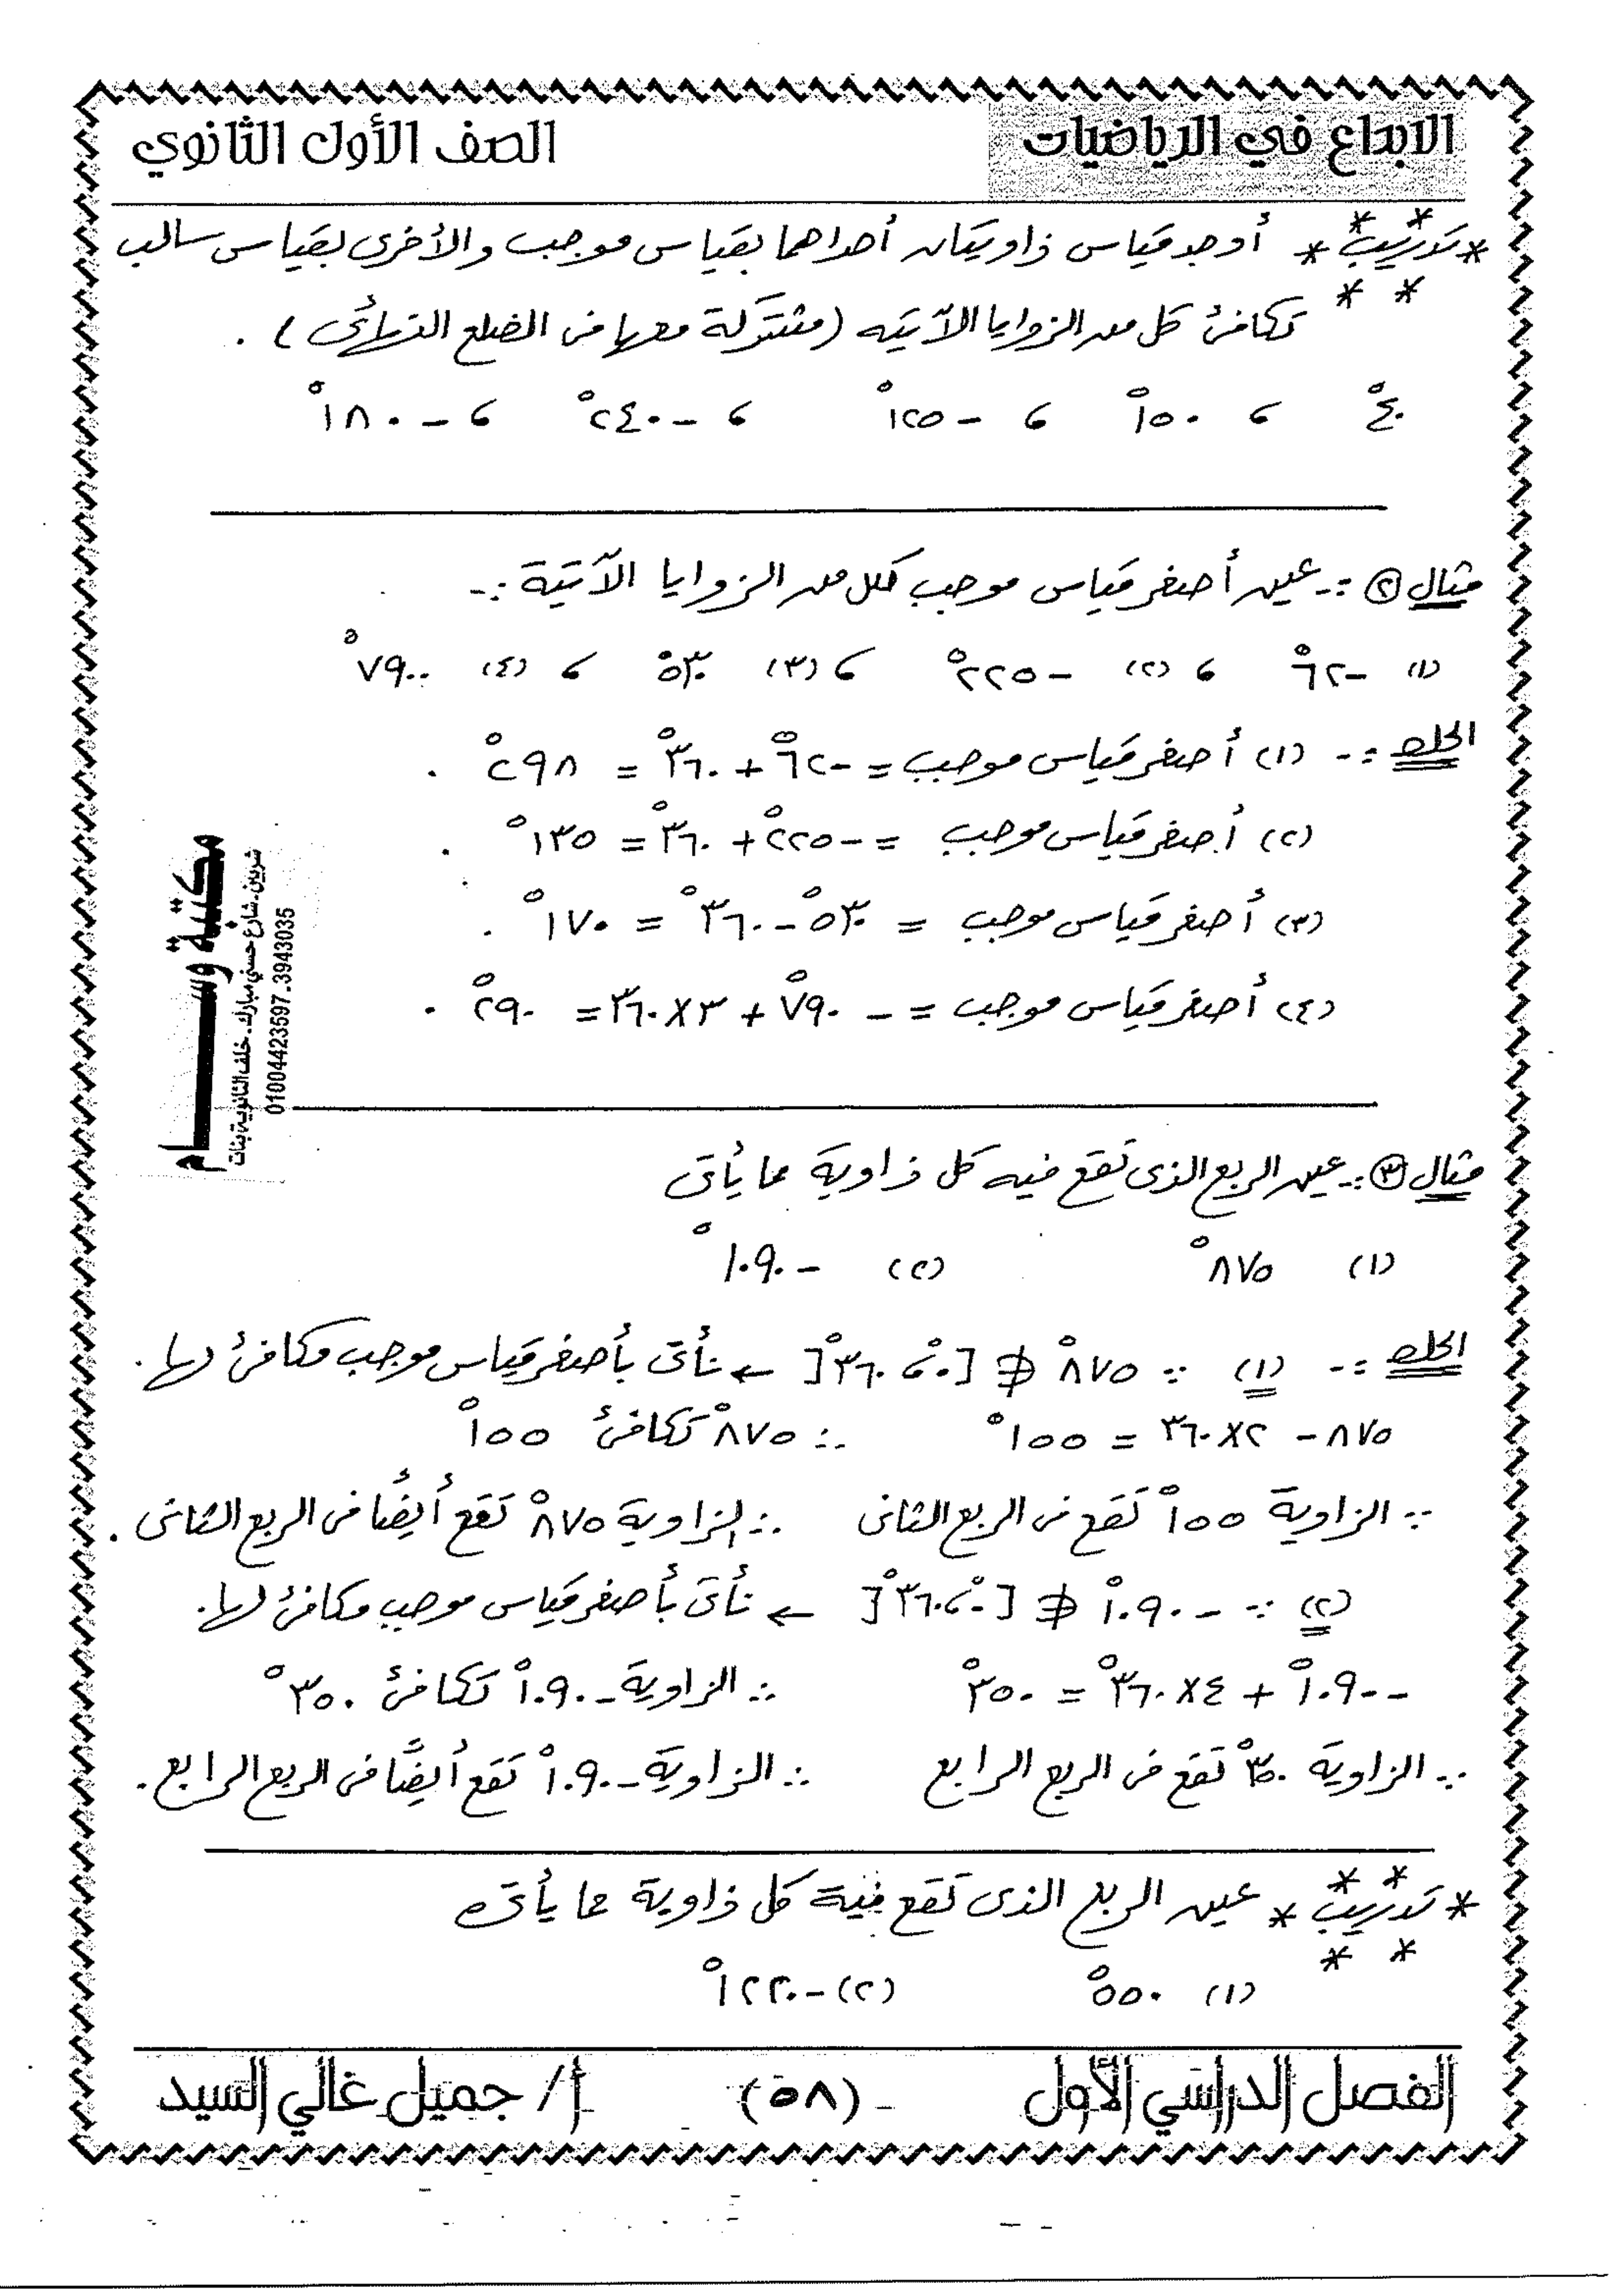 الابداع في الرياضيات الصف الأول الثانوي
* تدريب * أوجد قياس زاويتان أحداهما بقياس موجب والأخرى بقياس سالب
تكافئ كل من الزوايا الآتيه (مشتركة معها فى الضلع النهائى) .
٤٠° ، ١٥٠° ، -١٢٥° ، -٢٤٠° ، -١٨٠°
مثال (٢) :- عين أصغر قياس موجب لكل من الزوايا الآتية :-
(١) -٦٢° ، (٢) -٢٢٥° ، (٣) ٥٣٠° ، (٤) -٧٩٠°
الحل :- (١) أصغر قياس موجب = -٦٢° + ٣٦٠° = ٢٩٨° .
(٢) أصغر قياس موجب = -٢٢٥° + ٣٦٠° = ١٣٥° .
(٣) أصغر قياس موجب = ٥٣٠° - ٣٦٠° = ١٧٠° .
(٤) أصغر قياس موجب = -٧٩٠° + ٣×٣٦٠ = ٢٩٠° .
مكتبة وسام
شربين - شارع حسني مبارك - خلف الثانوية بنات
01004423597 - 3943035
مثال (٣) :- عين الربع الذى تقع فيه كل زاوية مما يأتى
(١) ٨٧٥° (٢) -١٠٩٠°
الحل :- (١) ∵ ٨٧٥° ∉ [٠° ، ٣٦٠°[ ← نأتى بأصغر قياس موجب مكافئ لها .
٨٧٥ - ٢×٣٦٠ = ١٥٥° ∴ ٨٧٥° تكافئ ١٥٥°
∵ الزاوية ١٥٥° تقع فى الربع الثانى ∴ الزاوية ٨٧٥° تقع أيضًا فى الربع الثانى .
(٢) ∵ -١٠٩٠° ∉ [٠° ، ٣٦٠°[ ← نأتى بأصغر قياس موجب مكافئ لها .
-١٠٩٠° + ٤×٣٦٠° = ٣٥٠° ∴ الزاوية -١٠٩٠° تكافئ ٣٥٠°
∵ الزاوية ٣٥٠° تقع فى الربع الرابع ∴ الزاوية -١٠٩٠° تقع أيضًا فى الربع الرابع .
* تدريب * عين الربع الذى تقع فية كل زاوية مما يأتى
(١) ٥٥٠° (٢) -١٢٢٠°
الفصل الدراسي الأول -(٥٨) أ/ جميل غالي السيد